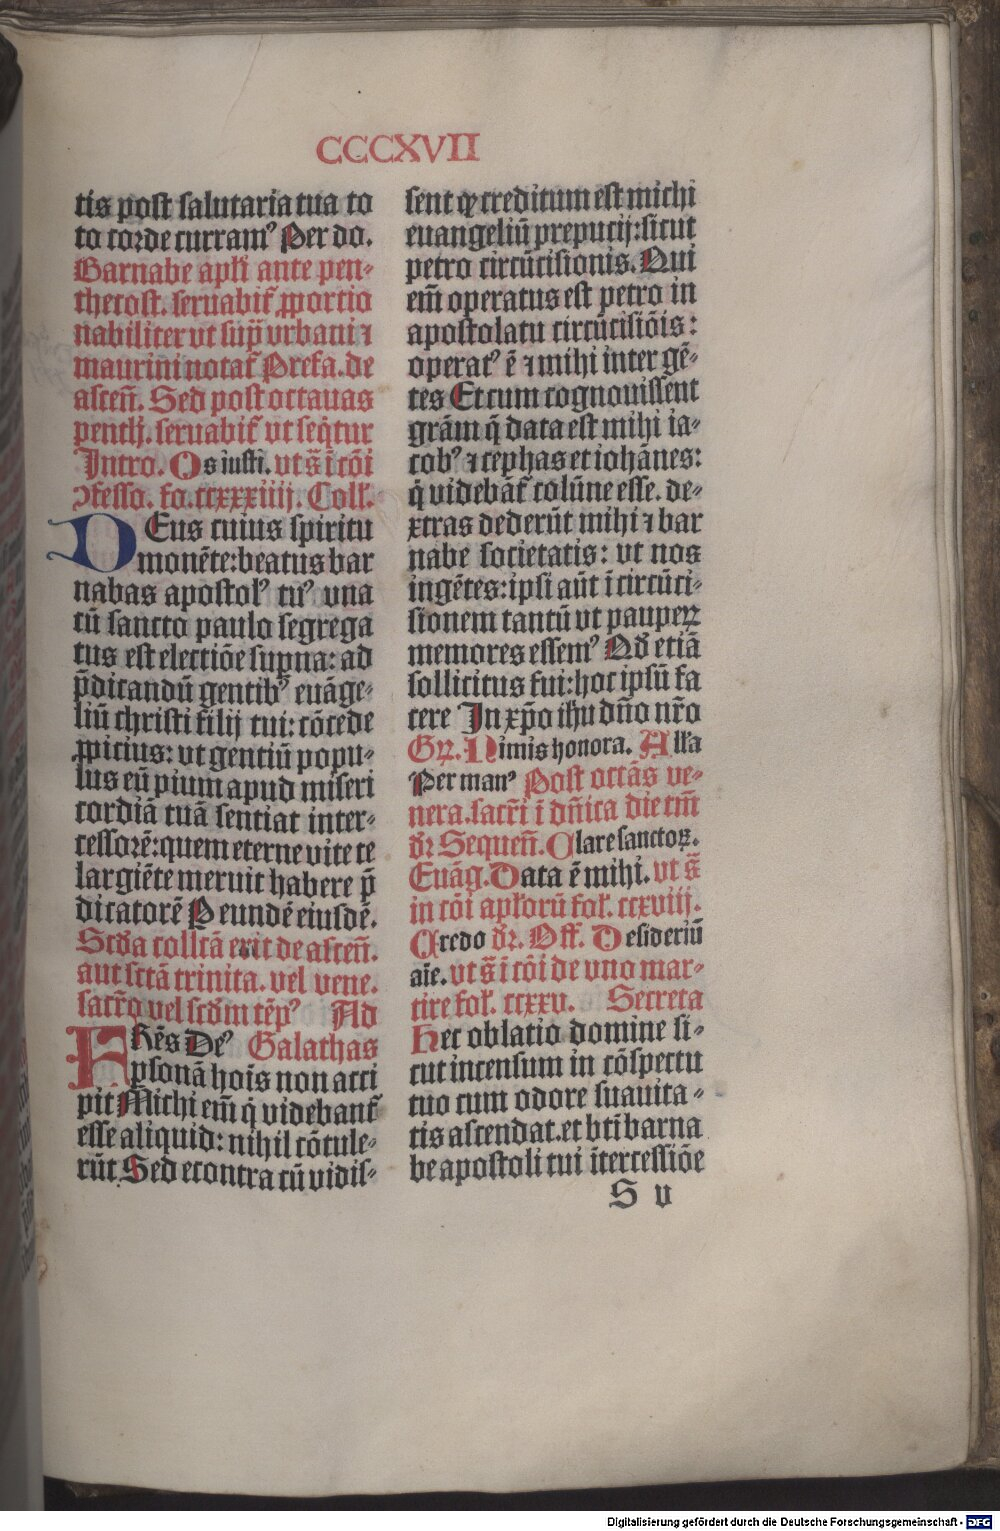 CCCXVII
tis post salutaria tua to
to corde curram⁹ Per do.
Barnabe apl'i ante pen-
thecost. seruabit̃ ꝓportio
nabiliter vt sup̃ vrbani ⁊
maurini notat̃ Prefa. de
ascen̄. Sed post octauas
penth̄. seruabit̃ vt seq̃tur
Intro. Os iusti. vt s̃ ĩ cõi
ɔfesso. fo. ccxxxiiij. Coll'.
DEus cuius spiritu
monẽte: beatus bar
nabas apostol⁹ tu⁹ vna
cũ sancto paulo segrega
tus est electiõe sup̱na: ad
p̃dicandũ gentib⁹ euãge-
liũ christi filij tui: cõcede
ꝓpicius: vt gentiũ popu-
lus eũ pium apud miseri
cordiã tuã sentiat inter-
cessorẽ: quem eterne vite te
largiẽte meruit habere p̃
dicatorẽ Per eundẽ eiusdẽ.
Scd'a collcã erit de ascen̄.
aut sctã trinita. vel vene.
sacr̃o vel scd'm tẽp⁹ Ad
FRẽs De⁹ Galathas
ꝑsonã hoĩs non acci
pit Michi em̃ q̇ videbant̃
esse aliquid: nihil cõtule-
rũt Sed econtra cũ vidis-
sent ꝙ creditum est michi
euangeliũ preputij: sicut
petro circũcisionis. Qui
em̃ operatus est petro in
apostolatu circũcisiõis:
operat⁹ ẽ ⁊ mihi inter gẽ-
tes Et cum cognouissent
grãm q̃ data est mihi ia-
cob⁹ ⁊ cephas et iohãnes:
q̇ videbãt̃ colũne esse. de-
xtras dederũt mihi ⁊ bar
nabe societatis: vt nos
in gẽtes: ipsi aũt ĩ circũci-
sionem tantũ vt pauperꝝ
memores essem⁹ Qd' etiã
sollicitus fui: hoc ipsũ fa
cere In xp̃o ihu dño nr̃o
Gꝝ. Nimis honora. All'a
Per man⁹ Post octãs ve-
nera. sacr̃i ĩ dñica die tm̃
dr̃ Sequen̄. Clare sanctoꝝ.
Euãg. Data ẽ mihi. vt s̃
in cõi apl'orũ fol'. ccxviij.
Credo dr̃. Off. Desideriũ
aĩe. vt s̃ ĩ cõi de vno mar-
tire fol'. ccxxv. Secreta
Hec oblatio domine si-
cut incensum in cõspectu
tuo cum odore suauita-
tis ascendat. et bt̃i barna
be apostoli tui ĩtercessiõe
S v
Digitalisierung gefördert durch die Deutsche Forschungsgemeinschaft - DFG